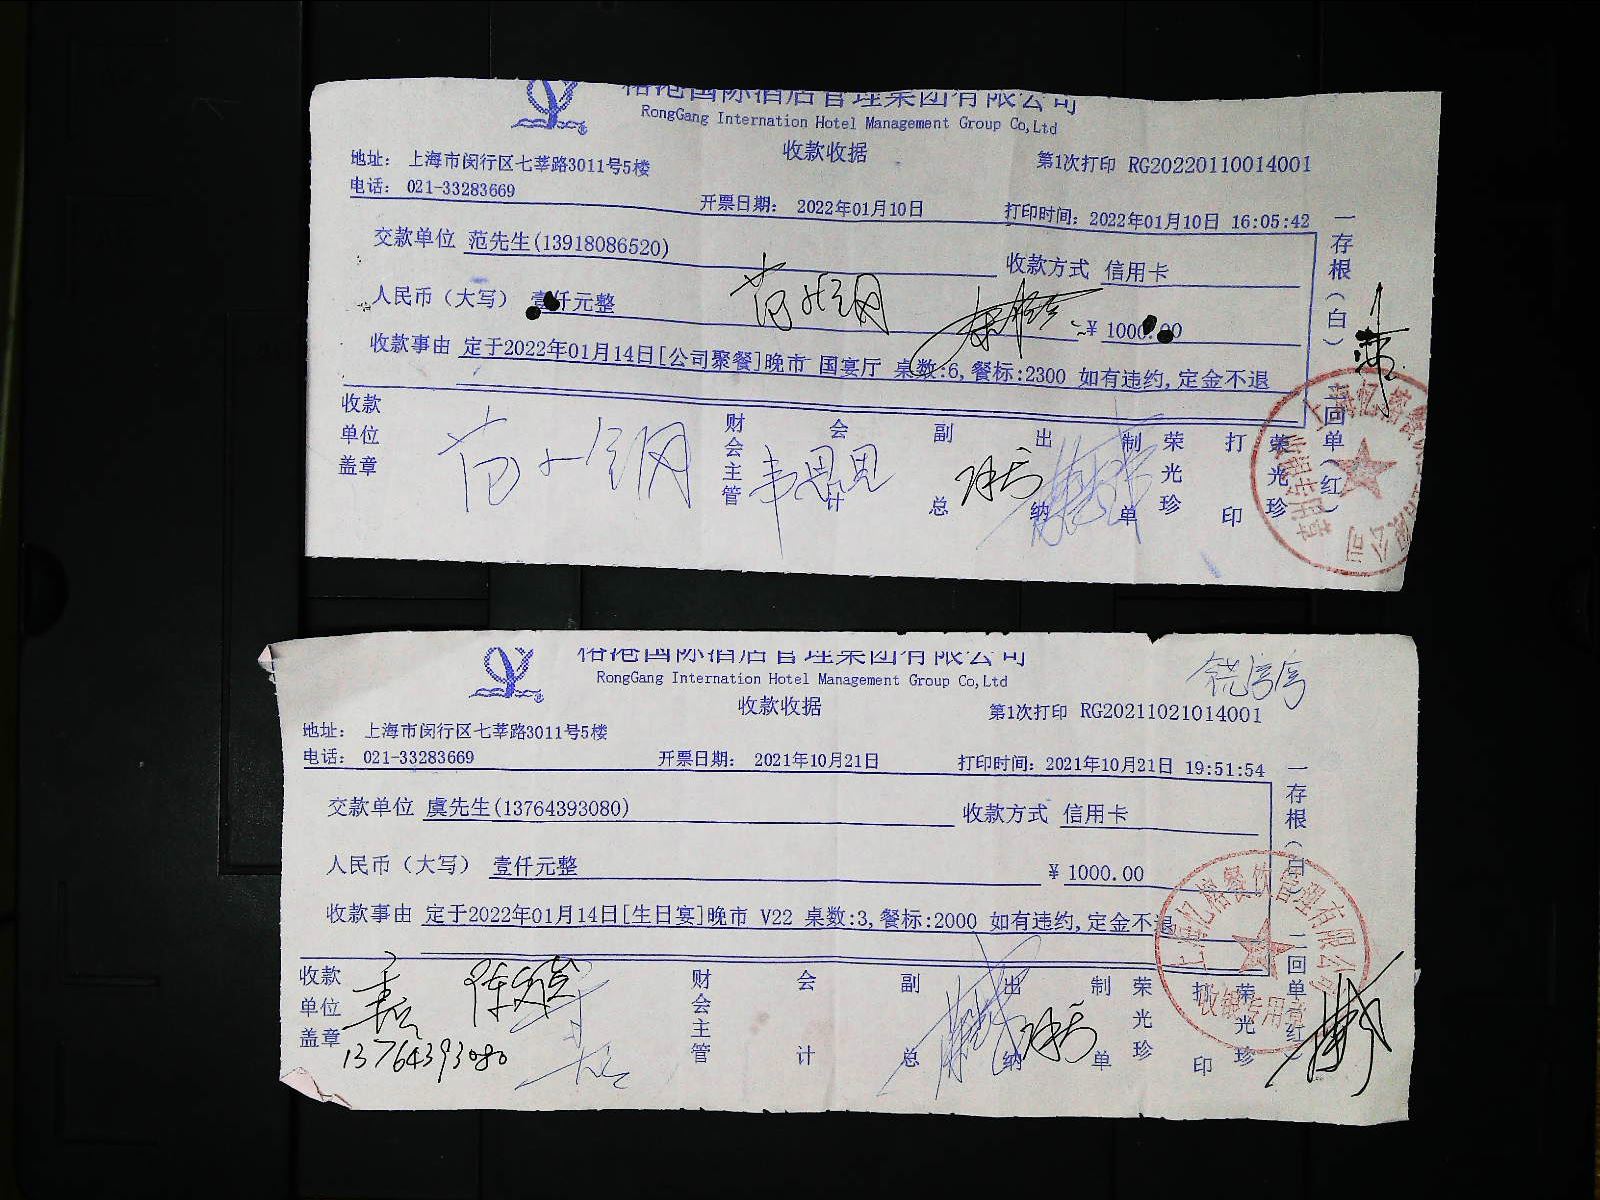 榕港国际酒店管理集团有限公司
RongGang Internation Hotel Management Group Co,Ltd
收款收据
第1次打印 RG20220110014001
地址： 上海市闵行区七莘路3011号5楼
电话： 021-33283669
开票日期： 2022年01月10日
打印时间：2022年01月10日 16:05:42
交款单位 范先生(13918086520)
收款方式 信用卡
人民币（大写） 壹仟元整
¥ 1000.00
收款事由 定于2022年01月14日[公司聚餐]晚市 国宴厅 桌数:6,餐标:2300 如有违约,定金不退
一存根(白) 二回单(红)
收款单位盖章
财会主管
会计
副总
出纳
制单 荣光珍
打印 荣光珍
收银专用章
榕港国际酒店管理集团有限公司
RongGang Internation Hotel Management Group Co,Ltd
收款收据
第1次打印 RG20211021014001
地址： 上海市闵行区七莘路3011号5楼
电话： 021-33283669
开票日期： 2021年10月21日
打印时间：2021年10月21日 19:51:54
交款单位 虞先生(13764393080)
收款方式 信用卡
人民币（大写） 壹仟元整
¥ 1000.00
收款事由 定于2022年01月14日[生日宴]晚市 V22 桌数:3,餐标:2000 如有违约,定金不退
一存根(白) 二回单(红)
收款单位盖章
13764393080
财会主管
会计
副总
出纳
制单 荣光珍
打印 荣光珍
上海忆榕餐饮管理有限公司
收银专用章